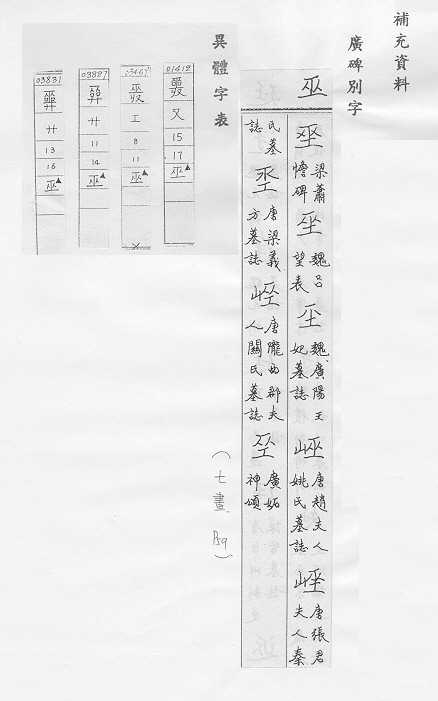 補充資料
廣碑別字
巫
梁蕭憺碑
魏呂望表
魏廣陽王妃墓誌
唐趙夫人姚氏墓誌
唐張君夫人秦氏墓誌
唐梁義方墓誌
唐隴西郡夫人關氏墓誌
廣妬神頌
(七畫 P59)
異體字表
01412
又
15
17
巫▲
03467
工
8
11
巫▲
03827
廾
11
14
巫▲
03831
廾
13
16
巫▲